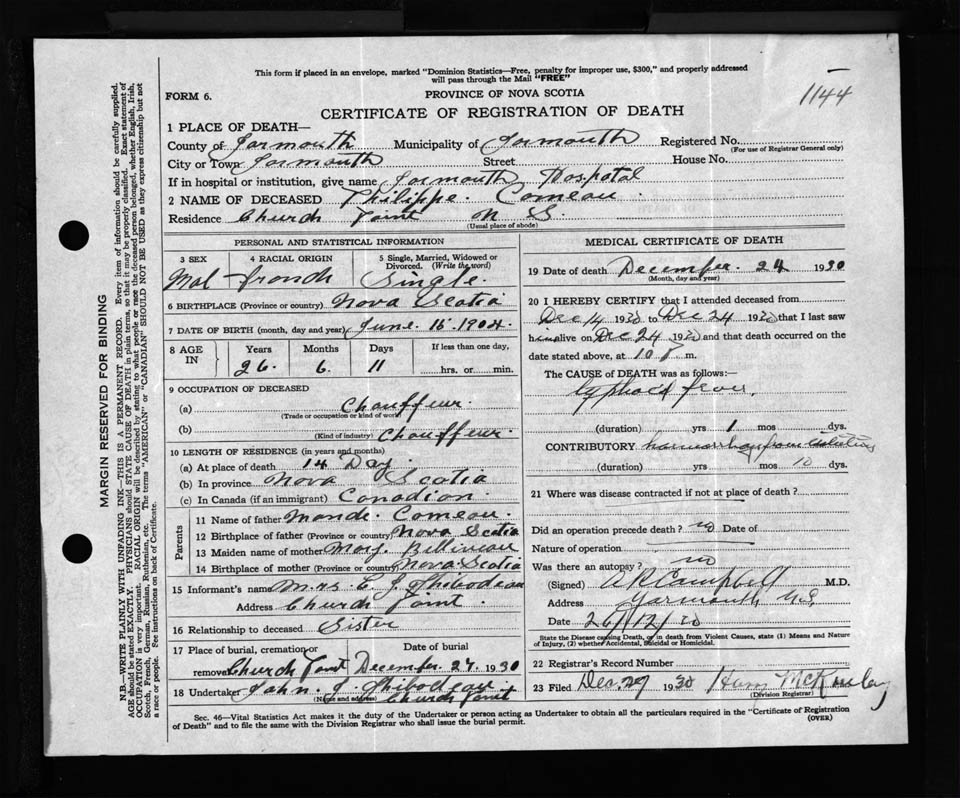 This form if placed in an envelope, marked "Dominion Statistics—Free, penalty for improper use, $300," and properly addressed
will pass through the Mail "FREE"
1144
FORM 6.
PROVINCE OF NOVA SCOTIA
CERTIFICATE OF REGISTRATION OF DEATH
1 PLACE OF DEATH—
County of Yarmouth Municipality of Yarmouth Registered No.
(For use of Registrar General only)
City or Town Yarmouth Street House No.
If in hospital or institution, give name Yarmouth Hospotal
2 NAME OF DECEASED Philippe. Comeau
Residence Church Point N S.
(Usual place of abode)
PERSONAL AND STATISTICAL INFORMATION
3 SEX 4 RACIAL ORIGIN 5 Single, Married, Widowed or
Divorced. (Write the word)
Mal French Single.
6 BIRTHPLACE (Province or country) Nova Scotia
7 DATE OF BIRTH (month, day and year) June. 15. 1904.
8 AGE IN Years Months Days If less than one day,
26. 6. 11 hrs. or min.
9 OCCUPATION OF DECEASED
(a) Chauffeur.
(Trade or occupation or kind of work)
(b) Chauffeur.
(Kind of industry)
10 LENGTH OF RESIDENCE (in years and months)
(a) At place of death 14 Day.
(b) In province Nova Scotia
(c) In Canada (if an immigrant) Canadian.
Parents
11 Name of father Mande. Comeau.
12 Birthplace of father (Province or country) Nova Scotia
13 Maiden name of mother Mary.
14 Birthplace of mother (Province or country) Nova Scotia
15 Informant's name Mrs Thibodeau
Address Church Point
16 Relationship to deceased Sister
17 Place of burial, cremation or removal Date of burial
Church Point December. 27. 1930
18 Undertaker John. J Thibodeau
(Name and address) Church Point
MEDICAL CERTIFICATE OF DEATH
19 Date of death December. 24 1930
(Month, day and year)
20 I HEREBY CERTIFY that I attended deceased from
Dec 14 1930 to Dec 24 1930 that I last saw
him alive on Dec 24 1930 and that death occurred on the
date stated above, at 10 P m.
The CAUSE of DEATH was as follows:
typhoid fever
(duration) yrs 1 mos dys.
CONTRIBUTORY haemorrhage from
(duration) yrs mos 10 dys.
21 Where was disease contracted if not at place of death?
Did an operation precede death? no Date of
Nature of operation
Was there an autopsy? no
(Signed) Campbell M.D.
Address Yarmouth N.S.
Date 26/12/30
State the Disease causing Death, or in death from Violent Causes, state (1) Means and Nature
of Injury, (2) whether Accidental, Suicidal or Homicidal.
22 Registrar's Record Number
23 Filed Dec. 29 1930
(Division Registrar)
Sec. 46—Vital Statistics Act makes it the duty of the Undertaker or person acting as Undertaker to obtain all the particulars required in the "Certificate of Registration
of Death" and to file the same with the Division Registrar who shall issue the burial permit. (OVER)
MARGIN RESERVED FOR BINDING
N.B.—WRITE PLAINLY WITH UNFADING INK—THIS IS A PERMANENT RECORD. Every item of information should be carefully supplied.
AGE should be stated EXACTLY. PHYSICIANS should STATE CAUSE OF DEATH in plain terms, so that it may be properly classified. Exact statement of
OCCUPATION is very important. RACIAL ORIGIN will be described by stating to what people or race the deceased person belonged, whether English, Irish,
Scotch, French, German, Russian, Ruthenian, etc. The terms "AMERICAN" or "CANADIAN" SHOULD NOT BE USED as they express citizenship but not
a race or people. See instructions on back of Certificate.